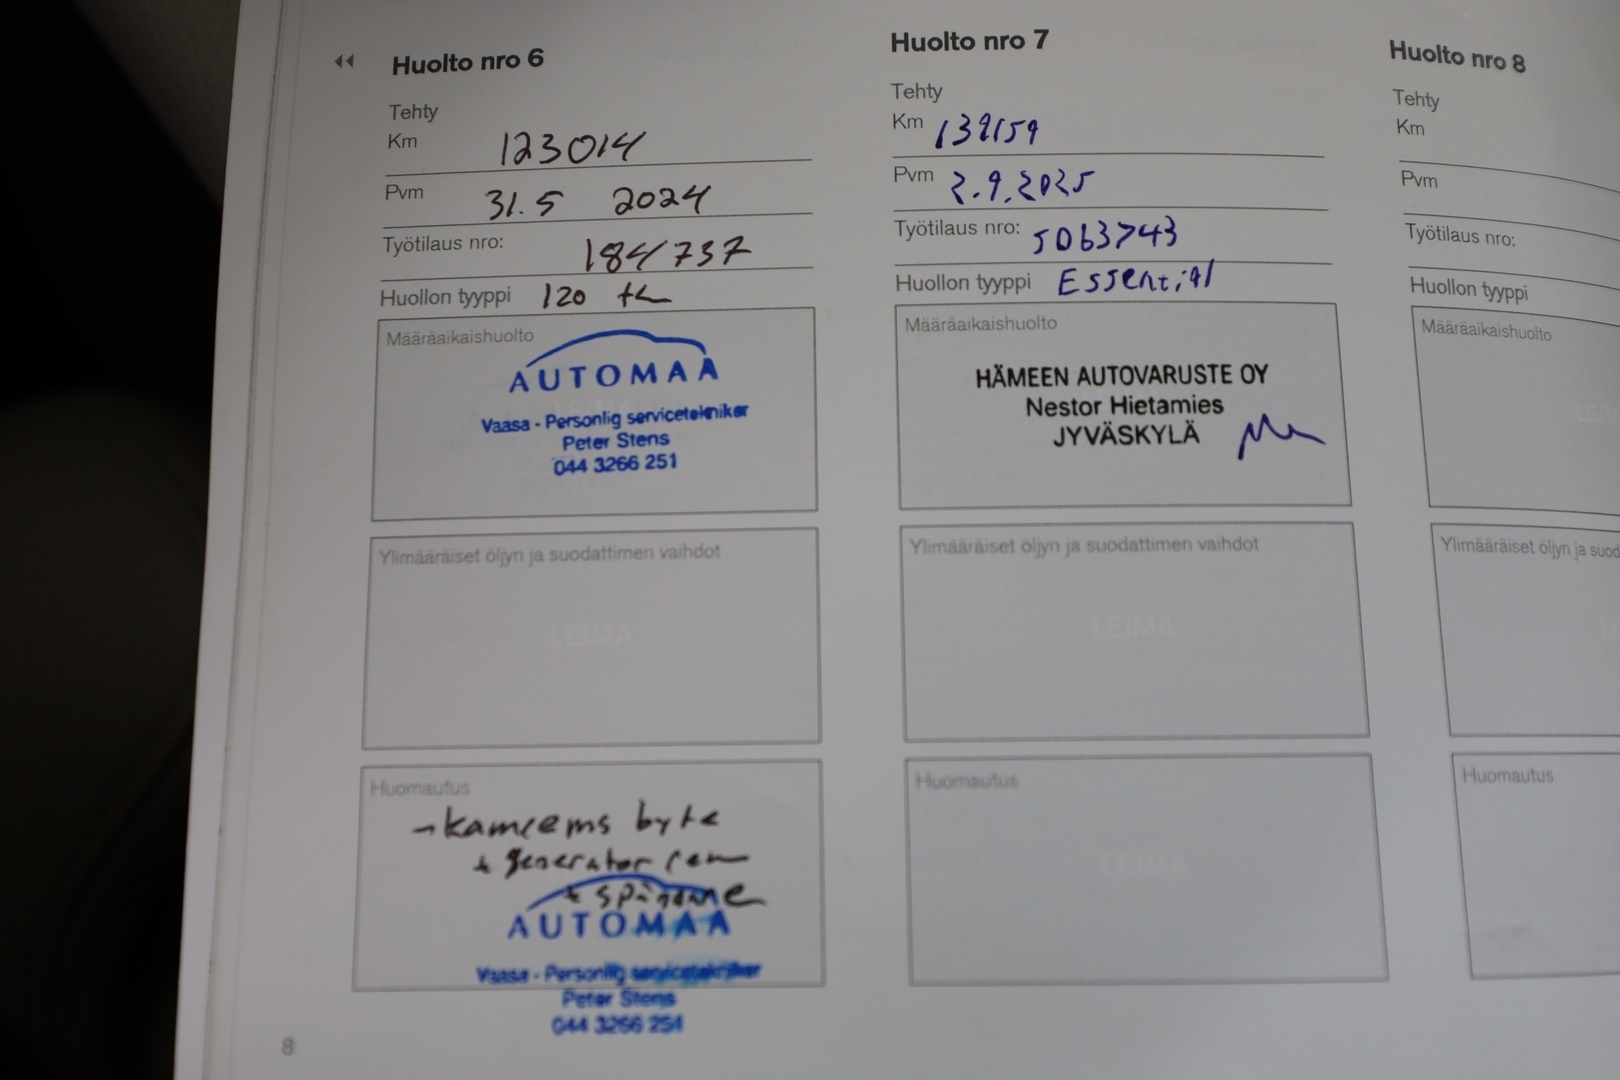 Huolto nro 6
Tehty
Km 123014
Pvm 31.5 2024
Työtilaus nro: 184737
Huollon tyyppi 120 t
Määräaikaishuolto
AUTOMAA
Vaasa - Personlig servicetekniker
Peter Stens
044 3266 251
Ylimääräiset öljyn ja suodattimen vaihdot
LEIMA
Huomautus
- kamrems byte
+ generator rem
+ spännare
AUTOMAA
Vaasa - Personlig servicetekniker
Peter Stens
044 3266 251
8
Huolto nro 7
Tehty
Km 139159
Pvm 2.9.2025
Työtilaus nro: 5063743
Huollon tyyppi Essential
Määräaikaishuolto
HÄMEEN AUTOVARUSTE OY
Nestor Hietamies
JYVÄSKYLÄ
Ylimääräiset öljyn ja suodattimen vaihdot
LEIMA
Huomautus
LEIMA
Huolto nro 8
Tehty
Km
Pvm
Työtilaus nro:
Huollon tyyppi
Määräaikaishuolto
Ylimääräiset öljyn ja suod
Huomautus